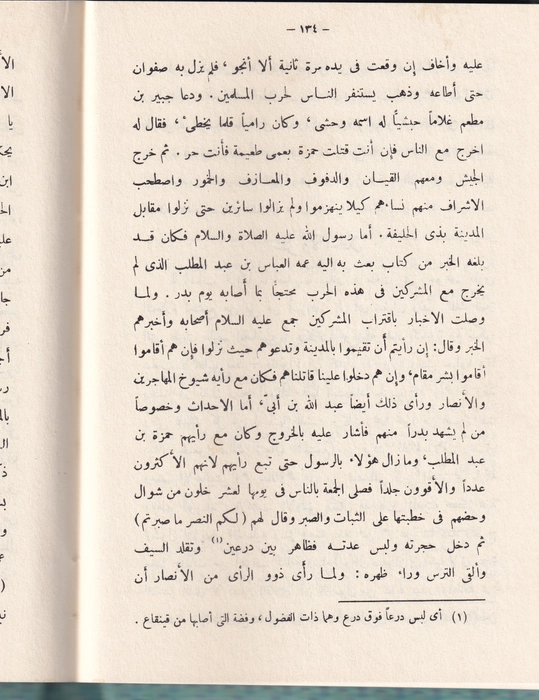 — ١٣٤ —
عليه وأخاف إن وقعت فى يده مرة ثانية ألا أنجو ، فلم يزل به صفوان
حتى أطاعه وذهب يستنفر الناس لحرب المسلمين . ودعا جبير بن
مطعم غلاماً حبشياً له اسمه وحشى ، وكان رامياً قلما يخطئ ، فقال له
اخرج مع الناس فإن أنت قتلت حمزة بعمى طعيمة فأنت حر . ثم خرج
الجيش ومعهم القيان والدفوف والمعازف والخمور واصطحب
الاشراف منهم نساءهم كيلا ينهزموا ولم يزالوا سائرين حتى نزلوا مقابل
المدينة بذى الحليفة . أما رسول الله عليه الصلاة والسلام فكان قد
بلغه الخبر من كتاب بعث به اليه عمه العباس بن عبد المطلب الذى لم
يخرج مع المشركين فى هذه الحرب محتجاً بما أصابه يوم بدر . ولما
وصلت الاخبار باقتراب المشركين جمع عليه السلام أصحابه وأخبرهم
الخبر وقال : إن رأيتم أن تقيموا بالمدينة وتدعوهم حيث نزلوا فإن هم أقاموا
أقاموا بشر مقام ، وإن هم دخلوا علينا قاتلناهم فكان مع رأيه شيوخ المهاجرين
والأنصار ورأى ذلك أيضاً عبد الله بن أبىّ ، أما الاحداث وخصوصاً
من لم يشهد بدراً منهم فأشار عليه بالخروج وكان مع رأيهم حمزة بن
عبد المطلب ، وما زال هؤلاء بالرسول حتى تبع رأيهم لانهم الأكثرون
عدداً والأقوون جلداً فصلى الجمعة بالناس فى يومها لعشر خلون من شوال
وحضهم فى خطبتها على الثبات والصبر وقال لهم (لكم النصر ما صبرتم)
ثم دخل حجرته ولبس عدته فظاهر بين درعين (١) وتقلد السيف
وألقى الترس وراء ظهره : ولما رأى ذوو الرأى من الأنصار أن
(١) أى لبس درعاً فوق درع وهما ذات الفضول ، وفضة التى أصابها من قينقاع .